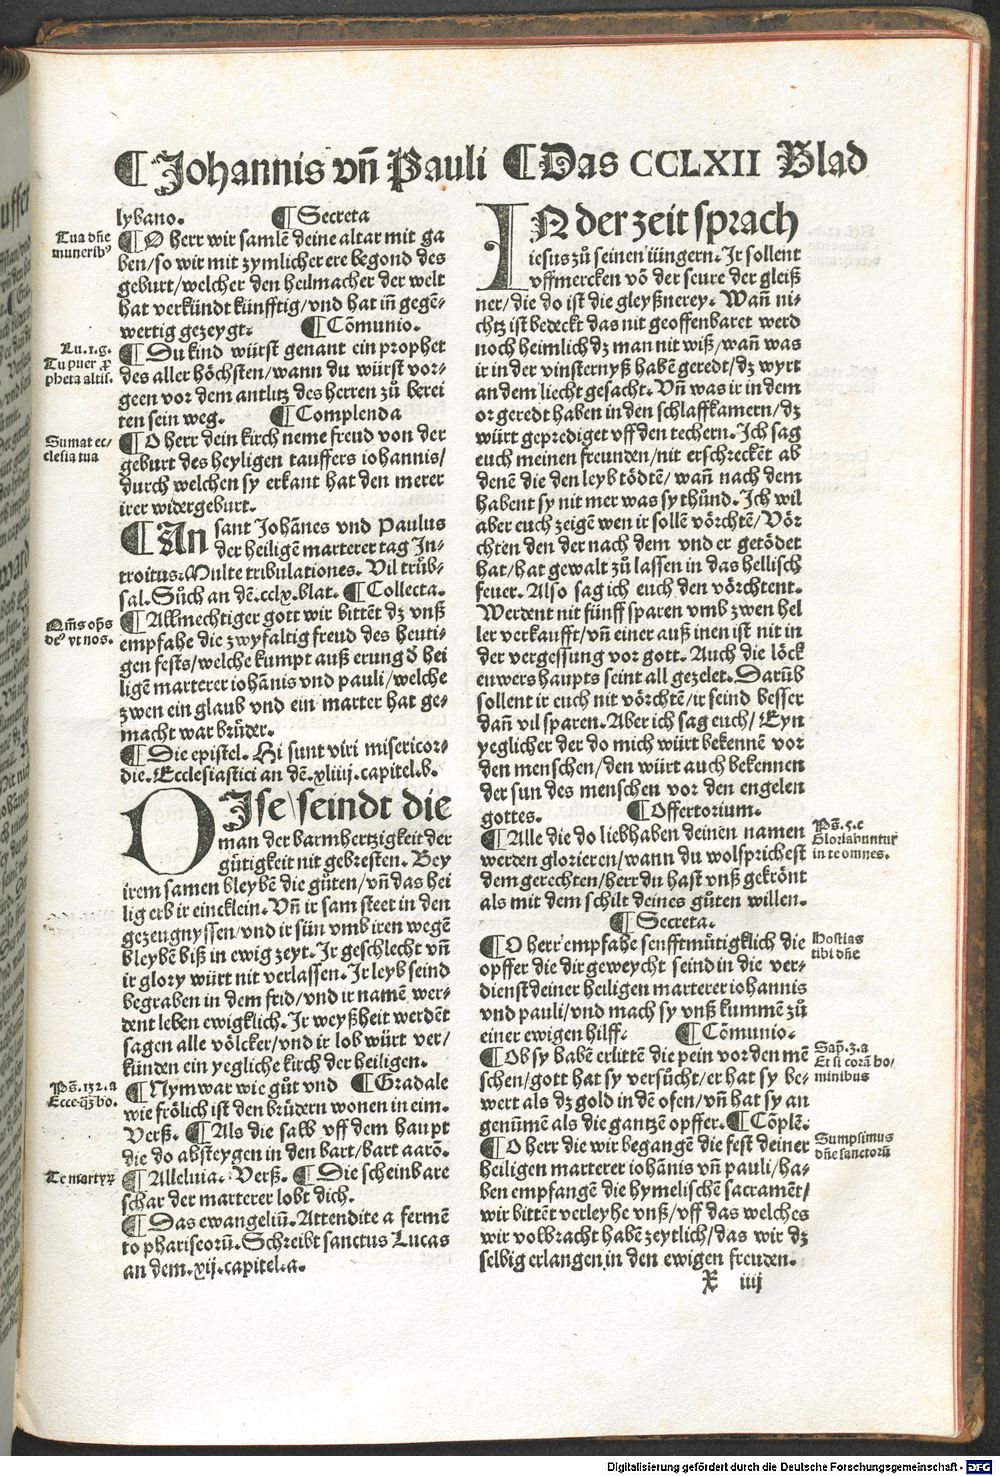 ¶Johannis vn̄ Pauli ¶Das CCLXII Blad
lybano. ¶Secreta
Tua dn̄e
muneribꝰ
¶O herr wir samlē deine altar mit ga
ben/so wir mit zymlicher ere begond des
geburt/welcher den heilmacher der welt
hat verkündt künfftig/vnd hat in̄ gegē-
wertig gezeygt. ¶Cōmunio.
Lu.1.g.
Tu puer ꝓ
pheta altis.
¶Du kind würst genant ein prophet
des aller höchsten/wann du würst vor-
geen vor dem antlitz des herren zů berei
ten sein weg. ¶Complenda
Sumat ec/
clesia tua
¶O herr dein kirch neme freud von der
geburt des heyligen tauffers iohannis/
durch welchen sy erkant hat den merer
irer widergeburt.
¶An sant Johānes vnd Paulus
der heiligē marterer tag In-
troitus. Multe tribulationes. Vil trůb-
sal. Sůch an dē.cclx.blat. ¶Collecta.
Om̄s op̄s
deꝰ vt nos.
¶Allmechtiger gott wir bittēt dz vnß
empfahe die zwyfaltig freud des heuti-
gen fests/welche kumpt auß erung d̄ hei
ligē marterer iohānis vnd pauli/welche
zwen ein glaub vnd ein marter hat ge-
macht war brüder.
¶Die epistel. Hi sunt viri misericor-
die. Ecclesiastici an dē.xliiij.capitel.b.
DIse seindt die
man der barmhertzigkeit der
gütigkeit nit gebresten. Bey
irem samen bleybē die gůten/vn̄ das hei
lig erb ir eincklein. Vn̄ ir sam steet in den
gezeugnyssen/vnd ir sün vmb iren wegē
bleybē biß in ewig zeyt. Jr geschlecht vn̄
ir glory würt nit verlassen. Jr leyb seind
begraben in dem frid/vnd ir namē wer-
dent leben ewigklich. Jr weyßheit werdēt
sagen alle völcker/vnd ir lob würt ver/
künden ein yegliche kirch der heiligen.
Ps̄.132.a
Ecce q̄ꝫ bo.
¶Nym war wie gůt vnd ¶Gradale
wie frölich ist den brüdern wonen in eim.
Verß. ¶Als die salb vff dem haupt
die do absteygen in den bart/bart aarō.
Te martyꝝ
¶Alleluia. Verß. ¶Die scheinbare
schar der marterer lobt dich.
¶Das ewangeliū. Attendite a fermē
to phariseorū. Schreibt sanctus Lucas
an dem.xij.capitel.a.
IN der zeit sprach
iesus zů seinen iüngern. Jr sollent
vffmercken vō der seure der gleiß
ner/die do ist die gleyßnerey. Wan̄ ni-
chtz ist bedeckt das nit geoffenbaret werd
noch heimlich dz man nit wiß/wan̄ was
ir in der vinsternyß habē geredt/dz wyrt
an dem liecht gesacht. Vn̄ was ir in dem
or geredt haben in den schlaffkamern/dz
würt geprediget vff den techern. Ich sag
euch meinen freunden/nit erschreckēt ab
denē die den leyb tödtē/wan̄ nach dem
habent sy nit mer was sy thünd. Ich wil
aber euch zeigē wen ir sollē vörchtē/Vör
chten den der nach dem vnd er getödet
hat/hat gewalt zů lassen in das hellisch
feuer. Also sag ich euch den vörchtent.
Werdent nit fünff sparen vmb zwen hel
ler verkaufft/vn̄ einer auß inen ist nit in
der vergessung vor gott. Auch die löck
euwers haupts seint all gezelet. Darūb
sollent ir euch nit vörchtē/ir seind besser
dan̄ vil sparen. Aber ich sag euch/Eyn
yeglicher der do mich würt bekennē vor
den menschen/den würt auch bekennen
der sun des menschen vor den engelen
gottes. ¶Offertorium.
Ps̄.5.c
Gloriabuntur
in te omnes.
¶Alle die do liebhaben deinen namen
werden glorieren/wann du wolsprichest
dem gerechten/herr du hast vnß gekrönt
als mit dem schilt deines gůten willen.
¶Secreta.
Hostias
tibi dn̄e
¶O herr empfahe senfftmütigklich die
opffer die dir geweycht seind in die ver-
dienst deiner heiligen marterer iohannis
vnd pauli/vnd mach sy vnß kummē zů
einer ewigen hilff. ¶Cōmunio.
Sap̄.3.a
Et si corā ho/
minibus
¶Ob sy habē erlittē die pein vor den mē
schen/gott hat sy versůcht/er hat sy be-
wert als dz gold in dē ofen/vn̄ hat sy an
genūmē als die gantzē opffer. ¶Cōplē.
Sumpsimus
dn̄e sanctorū
¶O herr die wir begangē die fest deiner
heiligen marterer iohānis vn̄ pauli/ha-
ben empfangē die hymelischē sacramēt/
wir bittēt verleyhe vnß/vff das welches
wir volbracht habē zeytlich/das wir dz
selbig erlangen in den ewigen freuden.
X iiij
Digitalisierung gefördert durch die Deutsche Forschungsgemeinschaft - DFG